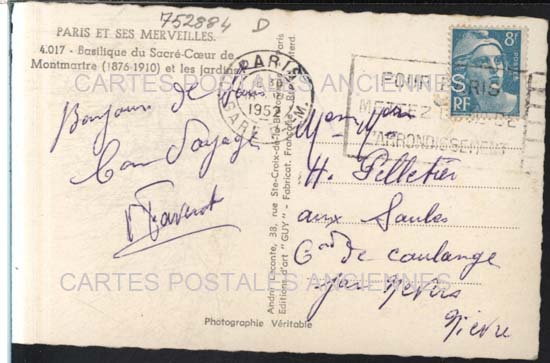 752884 D
PARIS ET SES MERVEILLES.
4.017 - Basilique du Sacré-Cœur de
Montmartre (1876-1910) et les jardins
Bonjour de Paris
Bon Voyage
CARTES POSTALES ANCIENNES
PARIS
1952
GARE
POUR PARIS
METTEZ
L'ARRONDISSEMENT
8F
POSTES
RF
André Leconte, 38, rue Ste-Croix-de-la-Bretonnerie
Editions d'art "GUY" - Fabricat. Française
H. Pelletier
aux Saules
de coulange
par Nevers
Nièvre
CARTES POSTALES ANCIENNES
Photographie Véritable